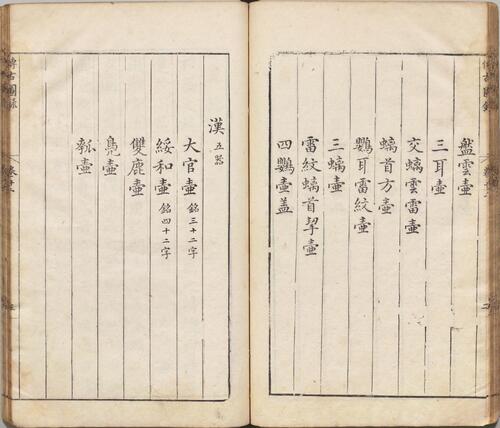 盤雲壺
三耳壺
交螭雲雷壺
螭首方壺
鸚耳雷紋壺
三螭壺
雷紋螭首挈壺
四鸚壺蓋
漢五器
大官壺銘三十二字
綏和壺銘四十二字
雙鹿壺
鳧壺
瓠壺
博古圖錄